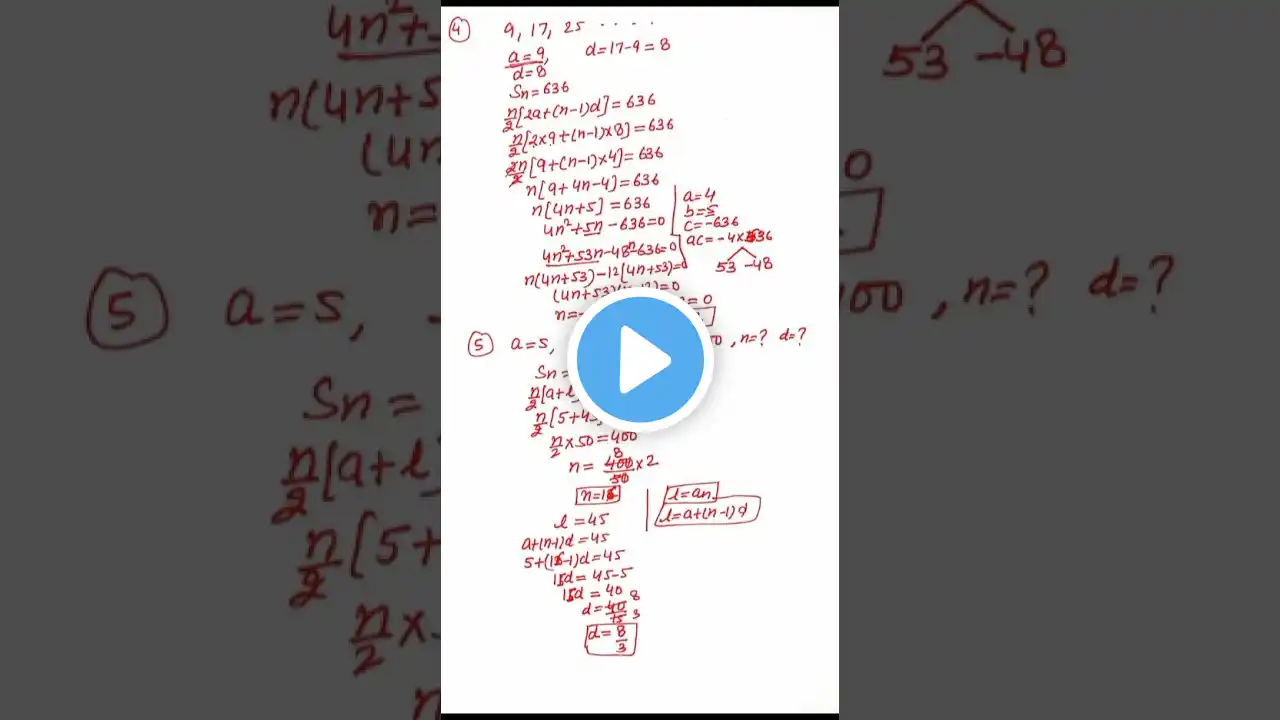 4 9, 17, 25 ....
a=9, d=17-9=8
d=8
Sn=636
n/2[2a+(n-1)d]=636
n/2[2×9+(n-1)×8]=636
2n/2[9+(n-1)×4]=636
n[9+4n-4]=636
n[4n+5]=636
4n²+5n-636=0
a=4
b=5
c=-636
ac=-4×636
53 -48
4n²+53n-48n-636=0
n(4n+53)-12(4n+53)=0
(4n+53)(n-12)=0
n=- =0
5 a=5, 00, n=? d=?
Sn=
n/2[a+l
n/2[5+45
n/2×50=400
n=400/50×2
8
n=16
l=an
l=a+(n-1)d
l=45
a+(n-1)d=45
5+(16-1)d=45
15d=45-5
15d=40
d=40/15 8 3
d=8/3